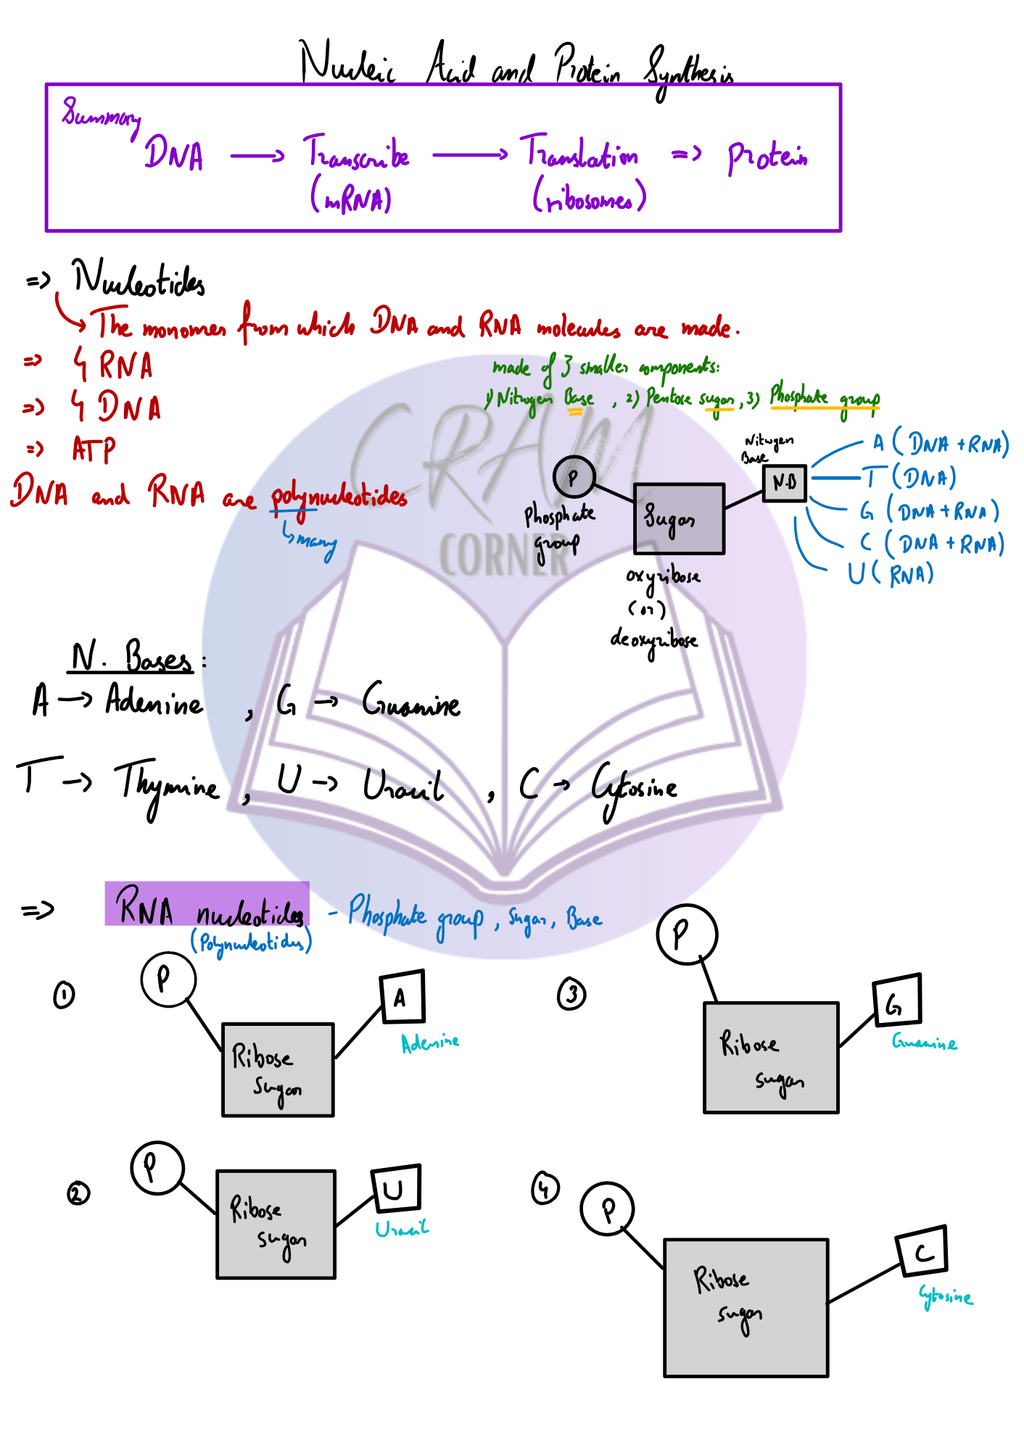 Nucleic Acid and Protein Synthesis
Summary
DNA → Transcribe → Translation => Protein
(mRNA) (ribosomes)
=> Nucleotides
↳ The monomer from which DNA and RNA molecules are made.
=> 4 RNA
=> 4 DNA
=> ATP
made of 3 smaller components:
1) Nitrogen Base , 2) Pentose sugar, 3) Phosphate group
DNA and RNA are polynucleotides
↳ many
P
Phosphate
group
Sugar
oxyribose
(or)
deoxyribose
Nitrogen
Base
N.B
A (DNA + RNA)
T (DNA)
G (DNA + RNA)
C (DNA + RNA)
U (RNA)
CRAM
CORNER
N. Bases:
A → Adenine , G → Guanine
T → Thymine, U → Uracil , C → Cytosine
=> RNA nucleotides - Phosphate group, Sugar, Base
(Polynucleotides)
①
P
Ribose
sugar
A
Adenine
③
P
Ribose
sugar
G
Guanine
②
P
Ribose
sugar
U
Uracil
④
P
Ribose
sugar
C
Cytosine